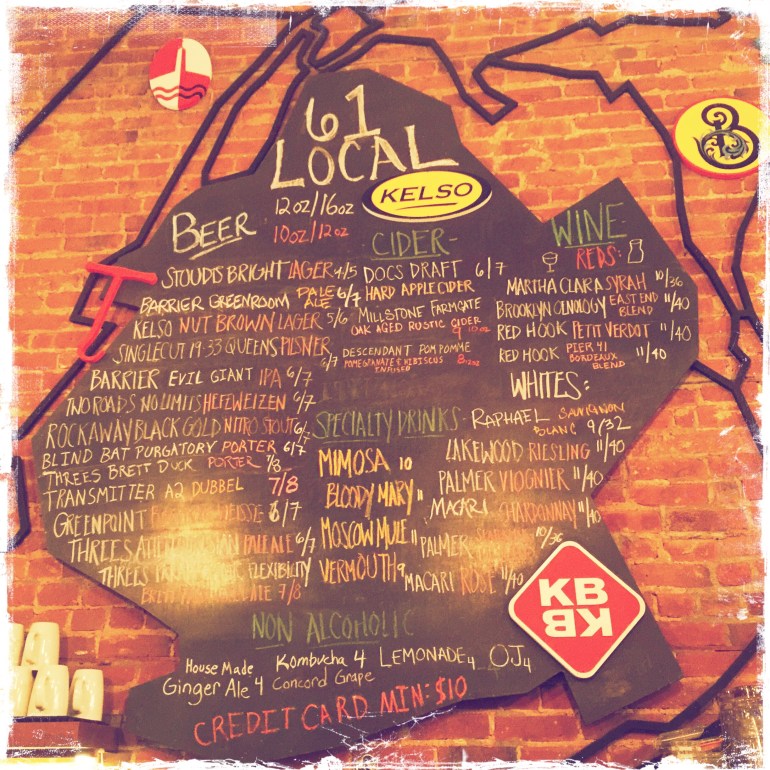 61
LOCAL
KELSO
BEER
12oz/16oz
10oz/12oz
STOUDTS BRIGHT LAGER 4/5
BARRIER GREENROOM PALE ALE 6/7
KELSO NUT BROWN LAGER 5/6
SINGLECUT 19-33 QUEENS PILSNER 6/7
BARRIER EVIL GIANT IPA 6/7
TWO ROADS NO LIMITS HEFEWEIZEN 6/7
ROCKAWAY BLACK GOLD NITRO STOUT 6/7
BLIND BAT PURGATORY PORTER 6/7
THREES BRETT DUCK PORTER 7/8
TRANSMITTER A2 DUBBEL 7/8
GREENPOINT 6/7
THREES PALE ALE 6/7
THREES FLEXIBILITY
ALE 7/8
CIDER-
DOCS DRAFT 6/7
HARD APPLE CIDER
MILLSTONE FARMGATE
OAK AGED RUSTIC CIDER
9 10oz
DESCENDANT POM POMME
POMEGRANATE & HIBISCUS 8 12oz
INFUSED
SPECIALTY DRINKS-
MIMOSA 10
BLOODY MARY 11
MOSCOW MULE 11
VERMOUTH 9
WINE
REDS:
MARTHA CLARA SYRAH 10/36
BROOKLYN OENOLOGY EAST END BLEND 11/40
RED HOOK PETIT VERDOT 11/40
RED HOOK PIER 41 BORDEAUX BLEND 11/40
WHITES:
RAPHAEL SAUVIGNON
BLANC 9/32
LAKEWOOD RIESLING 11/40
PALMER VIOGNIER 11/40
MACARI CHARDONNAY 11/40
PALMER 10/36
MACARI ROSE 11/40
KB
KB
NON ALCOHOLIC
House Made
Ginger Ale 4
Kombucha 4
Concord Grape
LEMONADE 4
OJ 4
CREDIT CARD MIN: $10